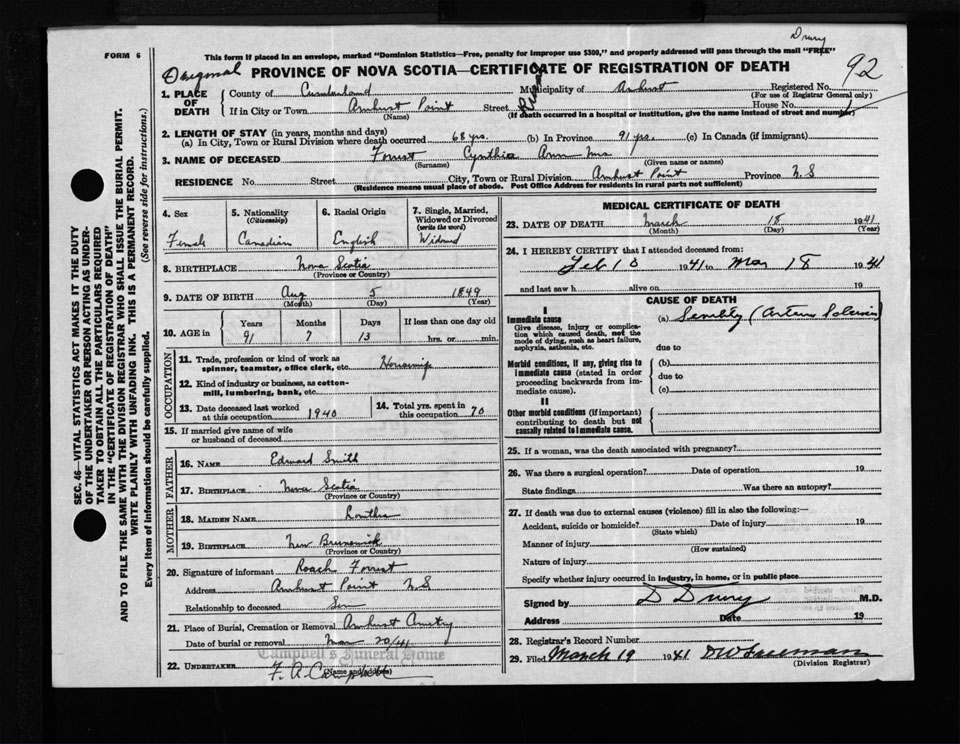 Drury
FORM 6
This form if placed in an envelope, marked "Dominion Statistics—Free, penalty for improper use $300," and properly addressed will pass through the mail "FREE"
Original
PROVINCE OF NOVA SCOTIA—CERTIFICATE OF REGISTRATION OF DEATH
92
1. PLACE OF DEATH
County of Cumberland Municipality of Amherst Registered No.
(For use of Registrar General only)
If in City or Town Amherst Point Street House No.
(Name) (If death occurred in a hospital or institution, give the name instead of street and number)
2. LENGTH OF STAY (in years, months and days)
(a) In City, Town or Rural Division where death occurred 68 yrs. (b) In Province 91 yrs. (c) In Canada (if immigrant)
3. NAME OF DECEASED Forrest Cynthia Ann Mrs
(Surname) (Given name or names)
RESIDENCE No. Street City, Town or Rural Division Amherst Point Province N.S
(Residence means usual place of abode. Post Office Address for residents in rural parts not sufficient)
4. Sex
Female
5. Nationality
(Citizenship)
Canadian
6. Racial Origin
English
7. Single, Married, Widowed or Divorced
(write the word)
Widowed
8. BIRTHPLACE Nova Scotia
(Province or Country)
9. DATE OF BIRTH Aug 5 1849
(Month) (Day) (Year)
10. AGE in
Years Months Days If less than one day old
91 7 13 hrs. or min.
OCCUPATION
11. Trade, profession or kind of work as spinner, teamster, office clerk, etc. Housewife
12. Kind of industry or business, as cotton-mill, lumbering, bank, etc.
13. Date deceased last worked at this occupation 1940
14. Total yrs. spent in this occupation 70
15. If married give name of wife or husband of deceased
FATHER
16. NAME Edward Smith
17. BIRTHPLACE Nova Scotia
(Province or Country)
MOTHER
18. MAIDEN NAME
19. BIRTHPLACE New Brunswick
(Province or Country)
20. Signature of informant Roach Forrest
Address Amherst Point N S
Relationship to deceased Son
21. Place of Burial, Cremation or Removal Amherst Cmetry
Date of burial or removal Mar 20/41
Campbell's Funeral Home
22. UNDERTAKER F. A. Campbell
(Name and address)
MEDICAL CERTIFICATE OF DEATH
23. DATE OF DEATH March 18 1941
(Month) (Day) (Year)
24. I HEREBY CERTIFY that I attended deceased from:
Feb 18 1941 to Mar 18 1941
and last saw h alive on 19
CAUSE OF DEATH
I
Immediate cause
Give disease, injury or complication which caused death, not the mode of dying, such as heart failure, asphyxia, asthenia, etc.
(a) Senility (Arterio
due to
Morbid conditions, if any, giving rise to immediate cause (stated in order proceeding backwards from immediate cause).
(b)
due to
(c)
II
Other morbid conditions (if important) contributing to death but not causally related to immediate cause.
25. If a woman, was the death associated with pregnancy?
26. Was there a surgical operation? Date of operation 19
State findings Was there an autopsy?
27. If death was due to external causes (violence) fill in also the following:—
Accident, suicide or homicide? Date of injury 19
(State which)
Manner of injury
(How sustained)
Nature of injury
Specify whether injury occurred in industry, in home, or in public place
Signed by D Drury M.D.
Address Date 19
28. Registrar's Record Number
29. Filed March 19 1941 DW Freeman
(Division Registrar)
SEC. 46—VITAL STATISTICS ACT MAKES IT THE DUTY
OF THE UNDERTAKER OR PERSON ACTING AS UNDER-
TAKER TO OBTAIN ALL THE PARTICULARS REQUIRED
IN THE "CERTIFICATE OF REGISTRATION OF DEATH"
AND TO FILE THE SAME WITH THE DIVISION REGISTRAR WHO SHALL ISSUE THE BURIAL PERMIT.
WRITE PLAINLY WITH UNFADING INK. THIS IS A PERMANENT RECORD.
Every item of information should be carefully supplied. (See reverse side for instructions.)